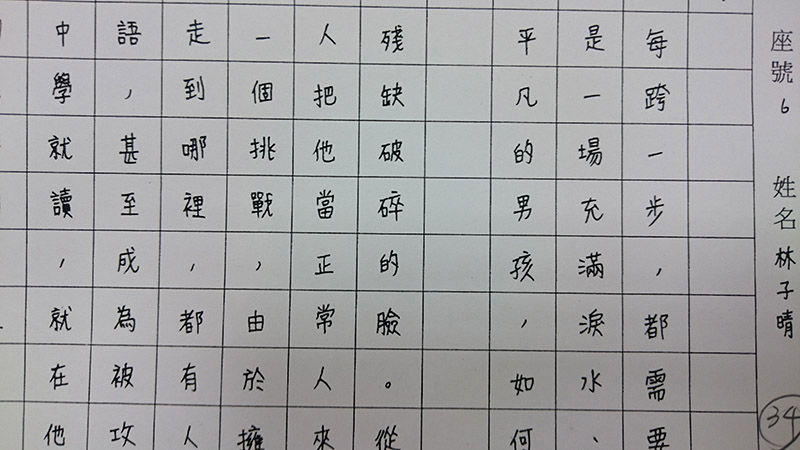 座號6 姓名林子晴
34
每跨一步，都需要
是一場充滿淚水、
平凡的男孩，如何
殘缺破碎的臉。從
人把他當正常人來
一個挑戰，由於擁
走到哪裡，都有人
語，甚至成為被攻
中學就讀，就在他